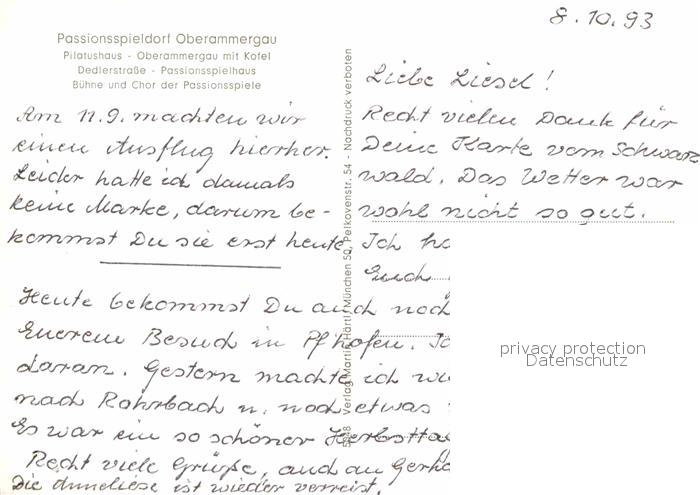 8.10.93
Passionsspieldorf Oberammergau
Pilatushaus - Oberammergau mit Kofel
Dedlerstraße - Passionsspielhaus
Bühne und Chor der Passionsspiele
Am 11.9. machten wir
einen Ausflug hierher.
Leider hatte ich damals
keine Marke, darum be-
kommst Du sie erst heute.
Heute bekommst Du auch noch
Euerem Besuch in Pfhofen.
daran. Gestern machte ich
nach Rohrbach u. noch etwas
Es war ein so schöner Herbstta
Recht viele Grüße, auch an Gerh
Die Anneliese ist wieder verreist.
5248 Verlag Martin Härtl, München 50, Pelkovenstr. 54 - Nachdruck verboten
Liebe Liesel!
Recht vielen Dank für
Deine Karte vom Schwarz
wald. Das Wetter war
wohl nicht so gut.
Ich
Euch
privacy protection
Datenschutz